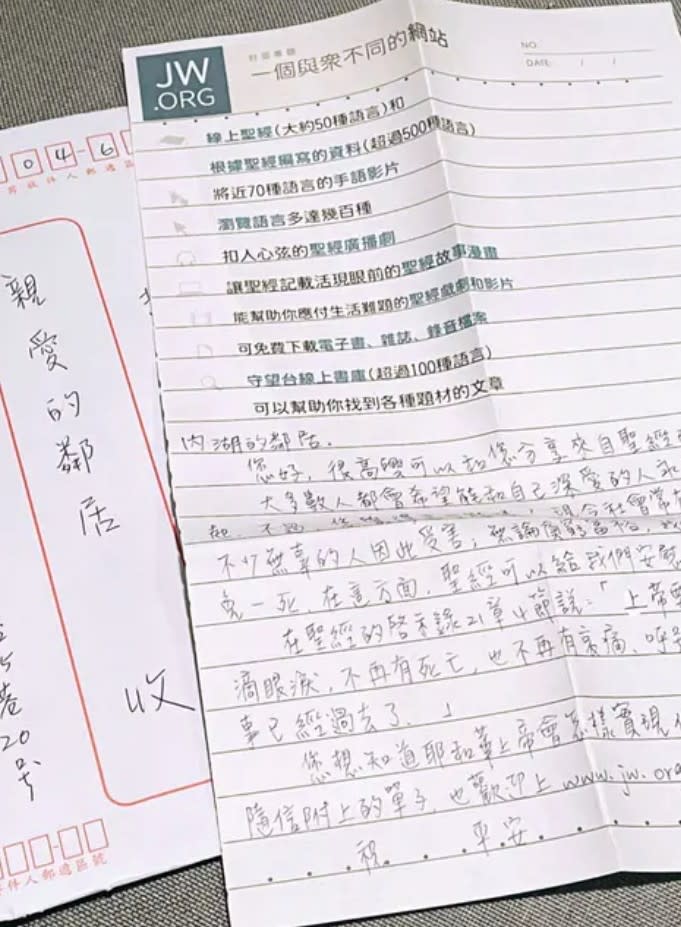 JW
.ORG
一個與眾不同的網站
NO.
DATE: / /
線上聖經(大約50種語言)和
根據聖經編寫的資料(超過500種語言)
將近70種語言的手語影片
瀏覽語言多達幾百種
扣人心弦的聖經廣播劇
讓聖經記載活現眼前的聖經故事漫畫
能幫助你應付生活難題的聖經戲劇和影片
可免費下載電子書、雜誌、錄音檔案
守望台線上書庫(超過100種語言)
可以幫助你找到各種題材的文章
內湖的鄰居.
您好, 很高興可以和您分享來自聖經
大多數人都會希望能和自己深愛的人永
起. 不過, 現今社會常
不少無辜的人因此受害; 無論貧窮富裕,
免一死. 在這方面, 聖經可以給我們安慰
在聖經的啓示錄21章4節說:「上帝
滴眼淚, 不再有死亡, 也不再有哀痛、呼
事已經過去了.」
您想知道耶和華上帝會怎樣實現
隨信附上的單子, 也歡迎上 www.jw.org
祝 平安
04-6
寄收件人郵遞區
親愛的鄰居
收
巷20号
件人郵遞區號